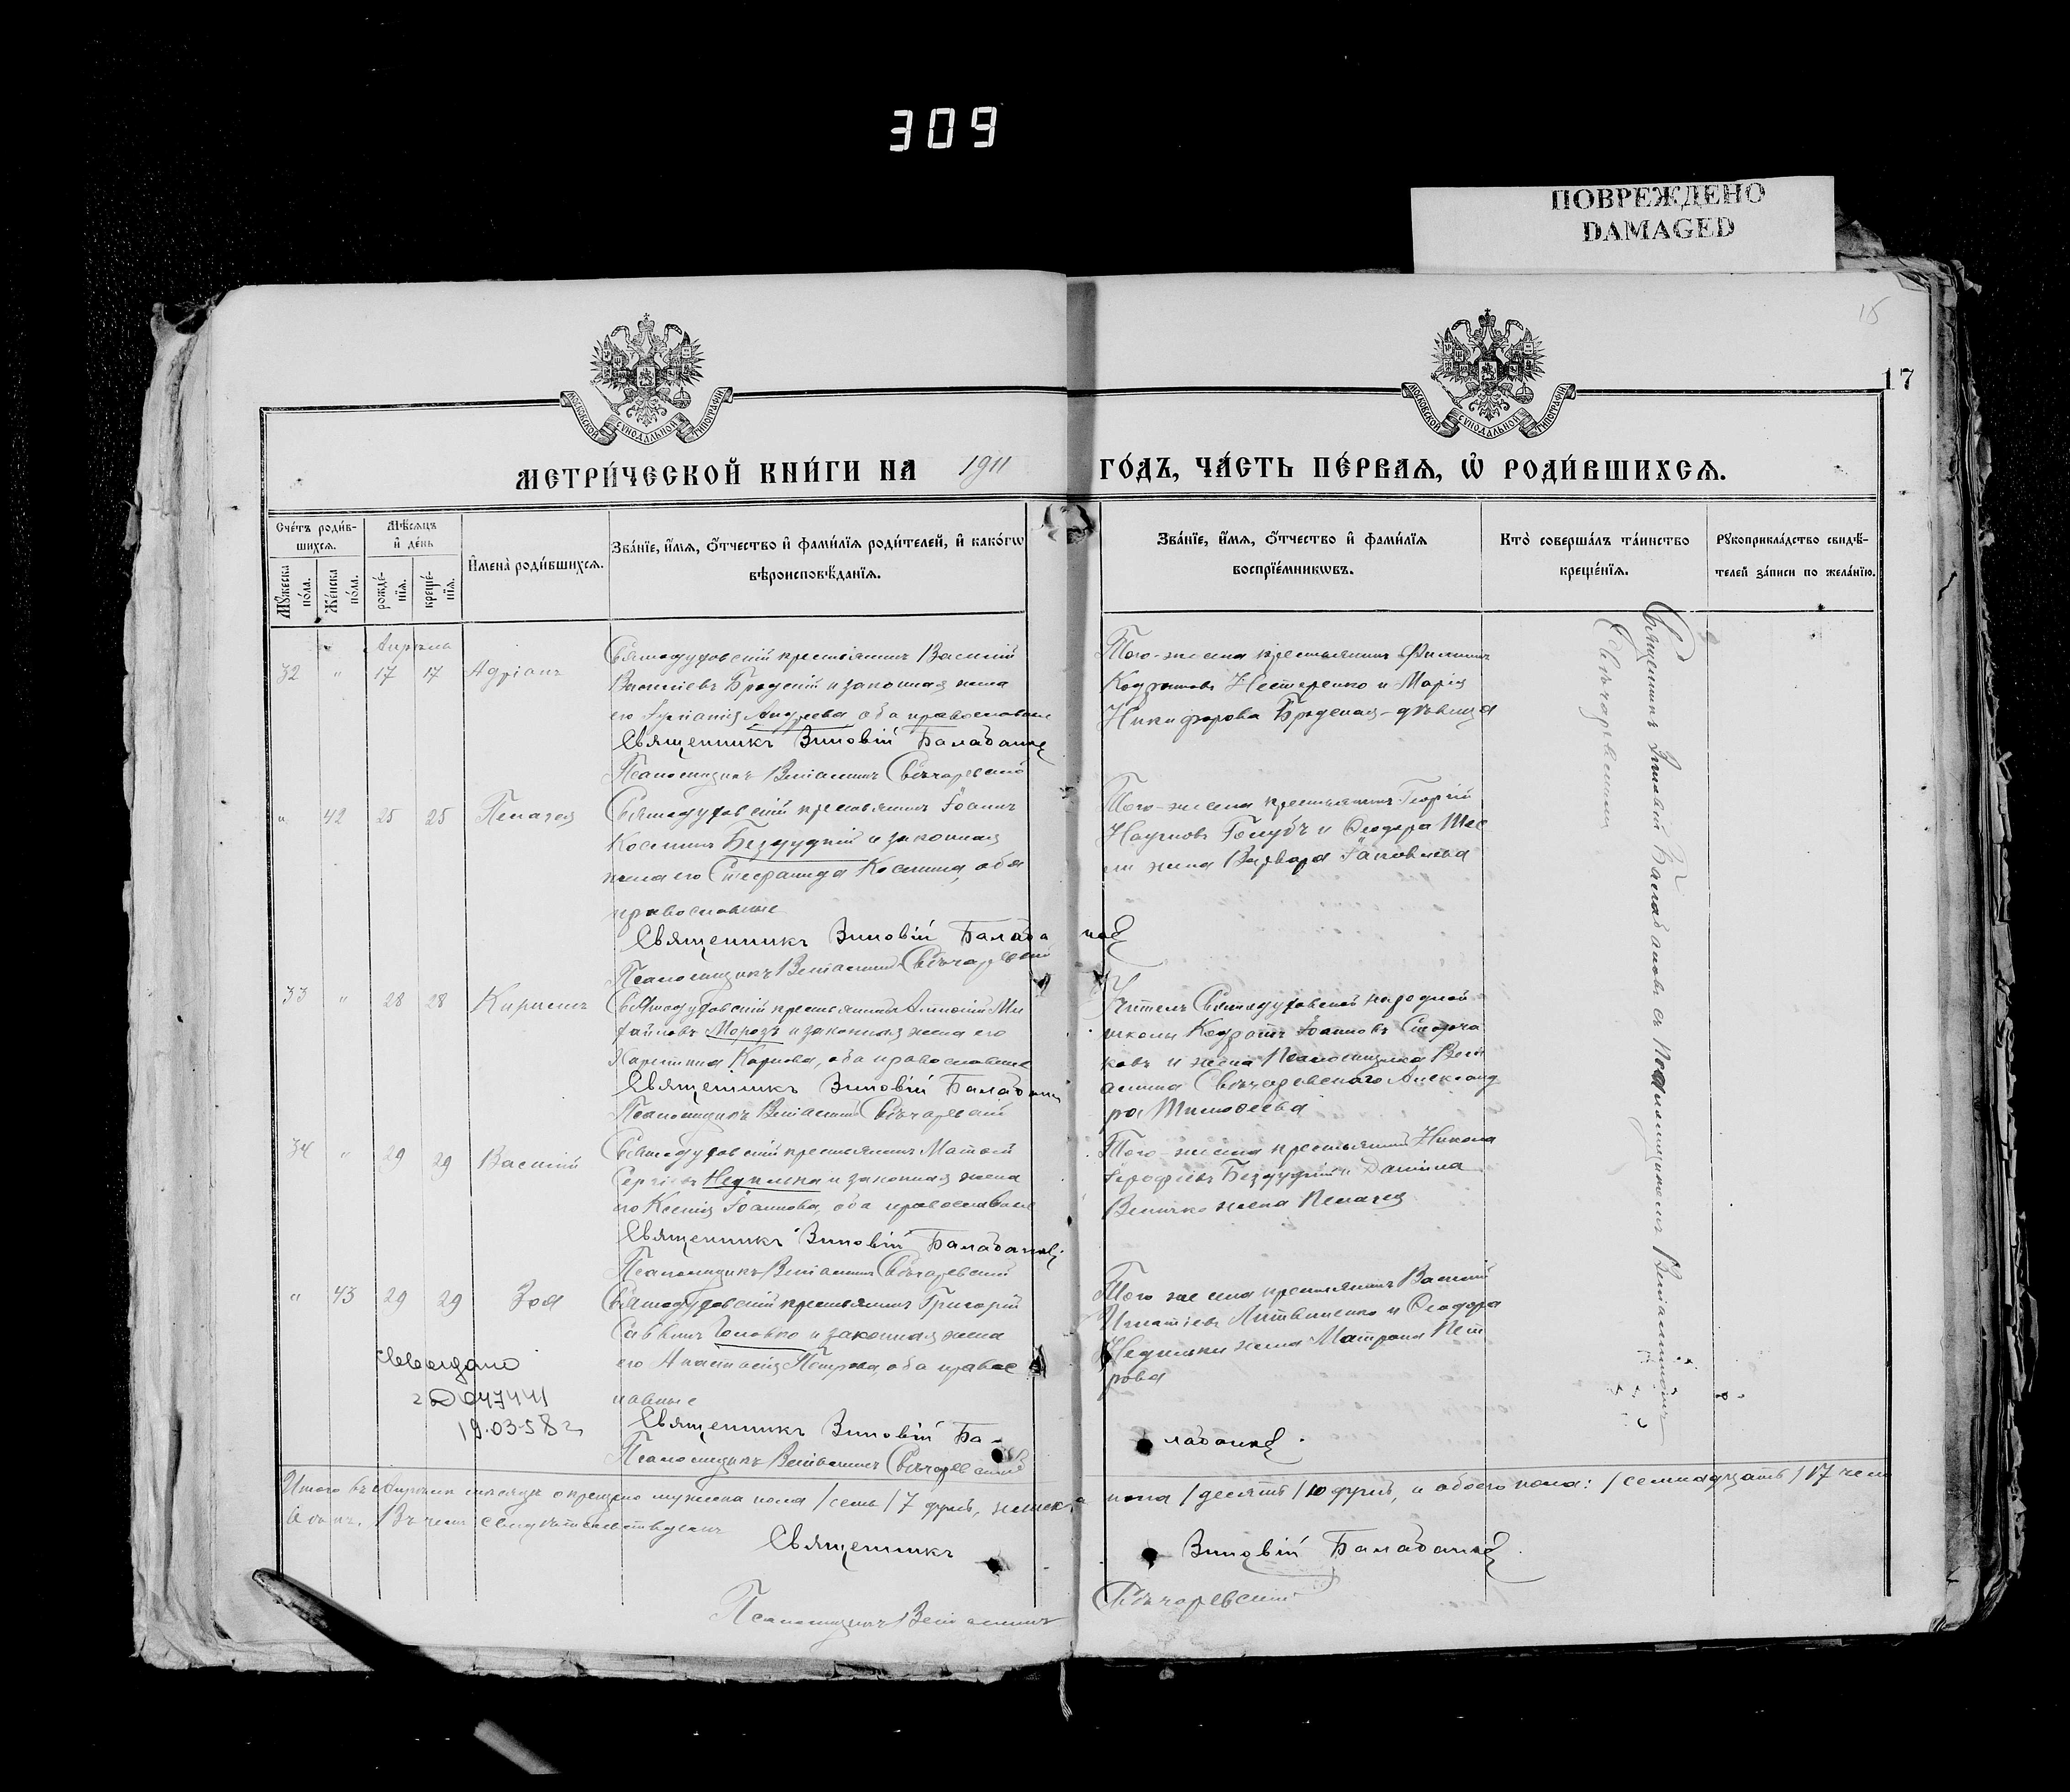 309
ПОВРЕЖДЕНО
DAMAGED
15
17
МОСКОВСКОЙ СУНОДАЛЬНОЙ ТИПОГРАФІИ
МОСКОВСКОЙ СУНОДАЛЬНОЙ ТИПОГРАФІИ
МЕТРИ́ЧЕСКОЙ КНИ́ГИ НА 1911 ГО́ДЪ, ЧА́СТЬ ПЕ́РВАЯ, Ѡ҆ РОДИ́ВШИХСЯ.
Сче́тъ роди́в-
шихся.
Мѣ́сяцъ
и҆ де́нь
Мꙋ́жеска
по́ла.
Же́нска
по́ла.
рожде́-
нїя.
креще́-
нїя.
И҆мена̀ роди́вшихся.
Зва́нїе, и҆́мя, ѻ҆́тчество и҆ фами́лїя роди́телей, и҆ како́гѡ
вѣроисповѣ́данїя.
Зва́нїе, и҆́мя, ѻ҆́тчество и҆ фами́лїя
воспрїе́мникѡвъ.
Кто̀ соверша́лъ та́инство
креще́нїя.
Рꙋкоприкла́дство свидѣ́-
телей за́писи по жела́нїю.
Апрѣль
32 " 17 17 Адріанъ
Святодуховскій крестьянинъ Василій
Васильевъ Бродскій и законная жена
его Андреева оба православные
Священникъ Зиновій Балабановъ
Псаломщикъ Веніаминъ Свѣчаревскій
Того-же села крестьянинъ Филиппъ
Кодратовъ Нестеренко и Марія
Никифорова Бродская-дѣвица
" 42 25 25 Пелагея
Святодуховскій крестьянинъ Іоаннъ
Косминъ Бездудній и законная
жена его Стефанида Космина, оба
православные
Священникъ Зиновій Балабановъ
Псаломщикъ Веніаминъ Свѣчаревскій
Того-же села крестьянинъ Георгій
Наумовъ Голубъ и Ѳеодора
жена Варвара Іаковлева
33 " 28 28 Кириллъ
Святодуховскій крестьянинъ Антоній Ми
хайловъ Морозъ и законная жена его
Харитина Карпова, оба православные
Священникъ Зиновій Балабановъ
Псаломщикъ Веніаминъ Свѣчаревскій
Учитель Святодуховской народной
школы Кодратъ Іоанновъ Сторча
ковъ и жена Псаломщика Вені
амина Свѣчаревскаго Александ
ра Тимоѳеева
34 " 29 29 Василій
Святодуховскій крестьянинъ Матвей
Сергіевъ Недилька и законная жена
его Ксенія Іоаннова, оба православные
Священникъ Зиновій Балабановъ
Псаломщикъ Веніаминъ Свѣчаревскій
Того-же села крестьянинъ Никола
Іероѳіевъ Бездудній и Даніила
Величко жена Пелагея
" 43 29 29 Зоя
Святодуховскій крестьянинъ Григорій
Саввинъ Головко и законная жена
его Анастасія Петрова, оба правос
лавные
Священникъ Зиновій Балабановъ
Псаломщикъ Веніаминъ Свѣчаревскій
Того же села крестьянинъ Василій
Игнатіевъ Литвиненко и Ѳеодора
Недильки жена Матрона Пет
рова
047441
19.03-58 г.
Священникъ Зиновій Балабановъ съ Псаломщикомъ Веніаминомъ
Свѣчаревскимъ
Итого въ Апрѣлѣ мѣсяцѣ окрещено мужеска пола /семь/ 7 душъ, женска пола /десять/ 10 душъ, и обоего пола: /семнадцать/ 17 чело
вѣкъ. Въ чемъ свидѣтельствуемъ
Священникъ Зиновій Балабановъ
Псаломщикъ Веніаминъ Свѣчаревскій